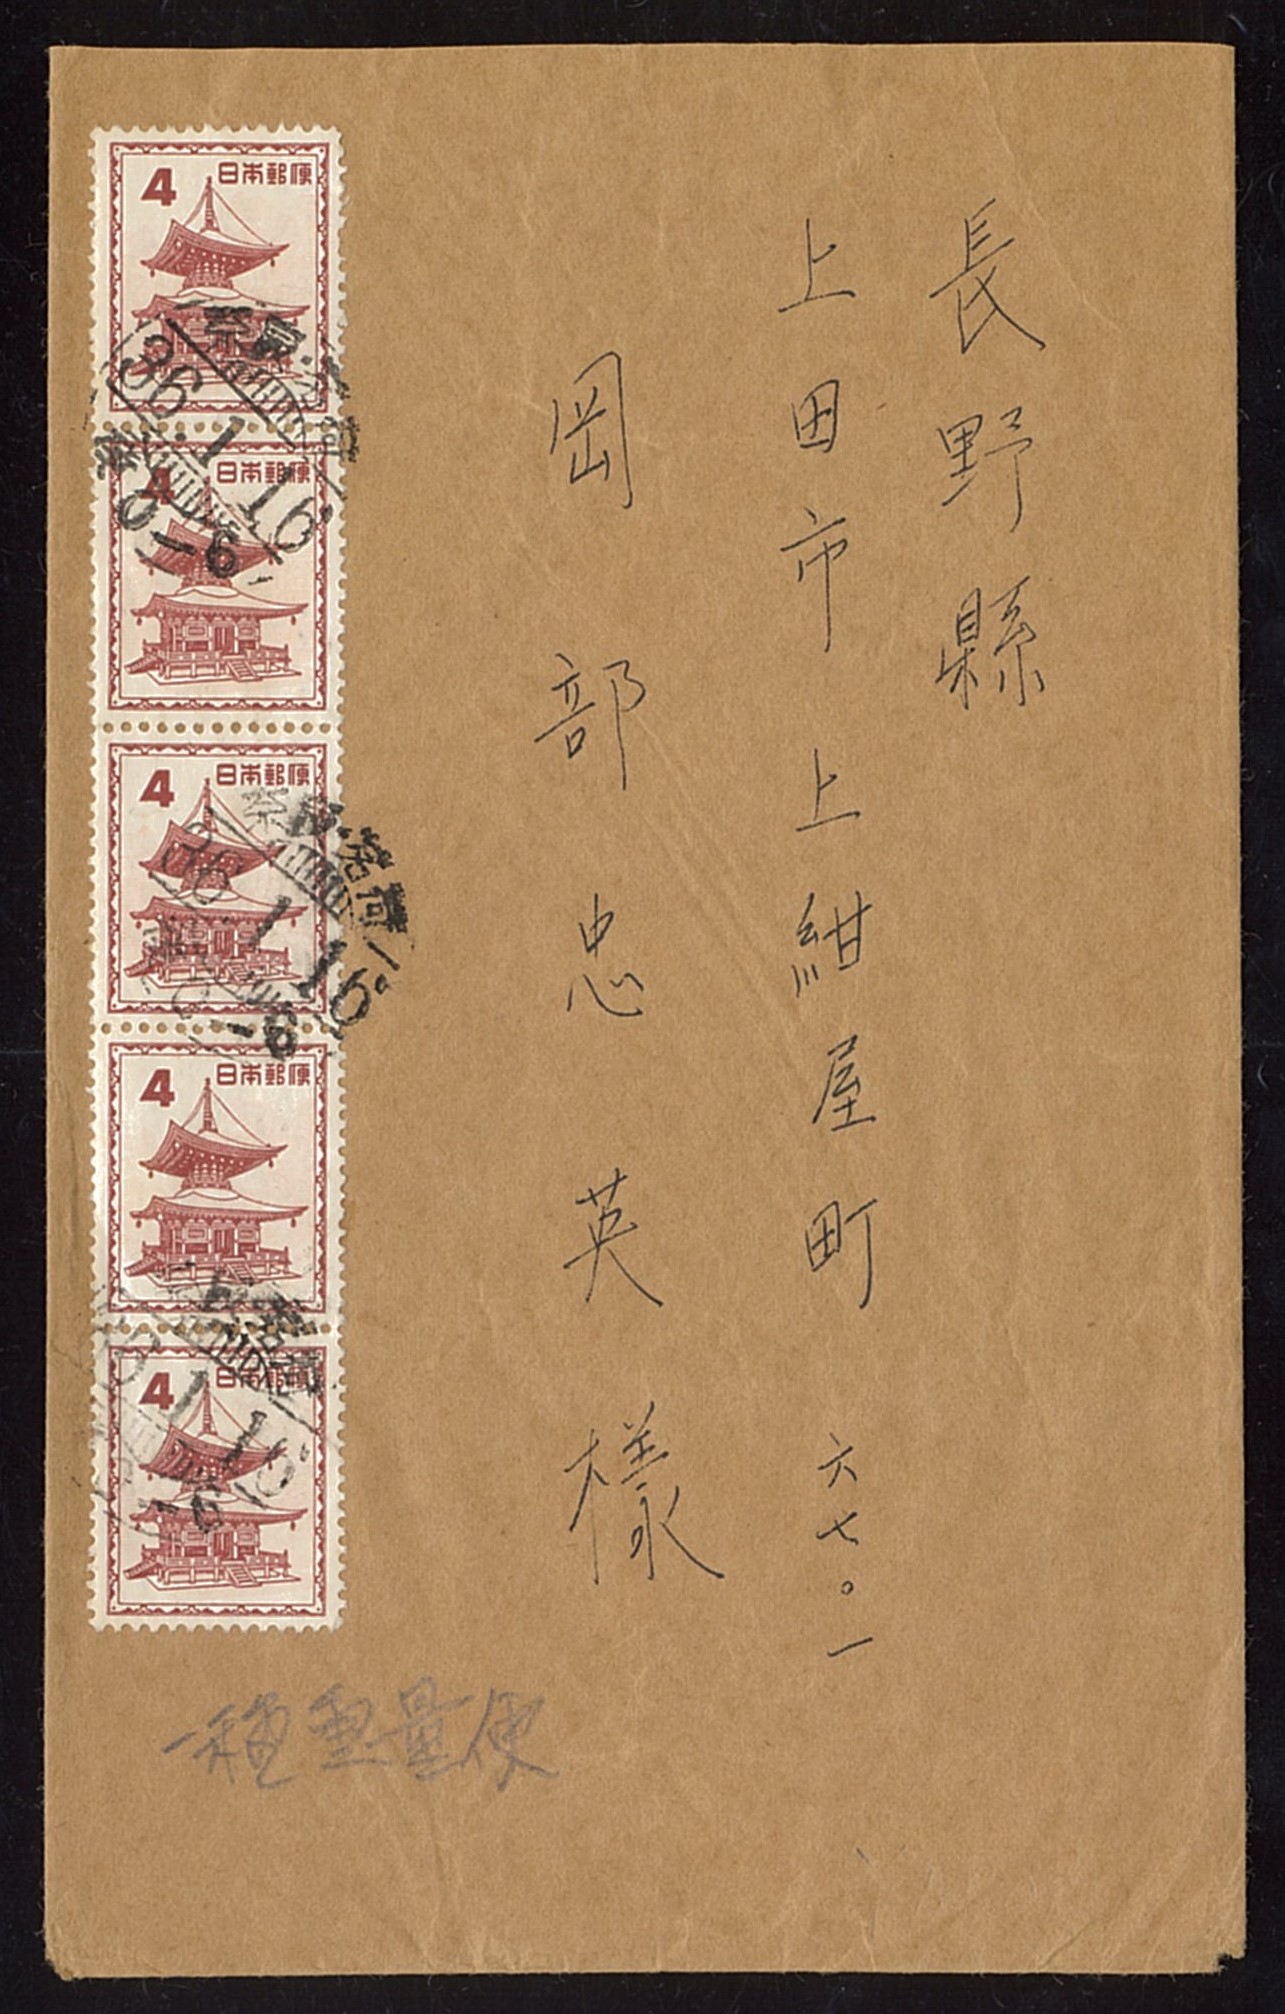 長野縣
上田市上紺屋町六七〇一
岡部忠英樣
4 日本郵便
4 日本郵便
4 日本郵便
4 日本郵便
4 日本郵便
36.1.16
-6
36.1.16
-6
1.16
-6
一種重量便